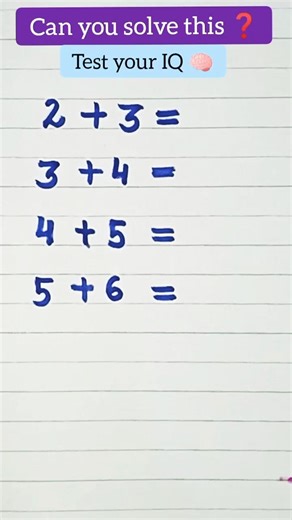 Can you solve this ❓
Test your IQ 🧠
2 + 3 =
3 + 4 =
4 + 5 =
5 + 6 =